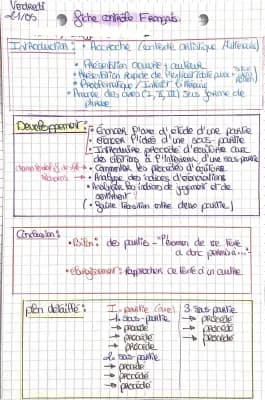 Vendredi
21/05
fiche contrôle Français.
Introduction : • Accroche (contexte artistique/littéraire)
• Présentation oeuvre + auteur
• Présentation rapide de
• Problématique / Intérêt littéraire
• Annonce des axes (I, II, III) sous forme de
phrase
Développement : • Énoncer l'axe d'étude d'une partie
• Énoncer l'idée d'une sous-partie
• Introduire procédé d'écriture avec
des citations à l'intérieur d'une sous-partie
• Commenter les procédés d'écriture
• Analyse des indices d'énonciations
• Analyser les indices de jugement et de
sentiment
(• faire transition entre deux partie)
Conclusion :
• Bilan : des parties - "l'examen de ce texte
a donc permis à ..."
• élargissement : Rapprocher ce texte à un autre
plan détaillé :
I - partie (axe)
1. sous-partie
→ procédé
→ procédé
→ procédé
2. sous-partie
→ procédé
→ procédé
→ procédé
3. sous-partie
→ procédé
→ procédé
→ procédé